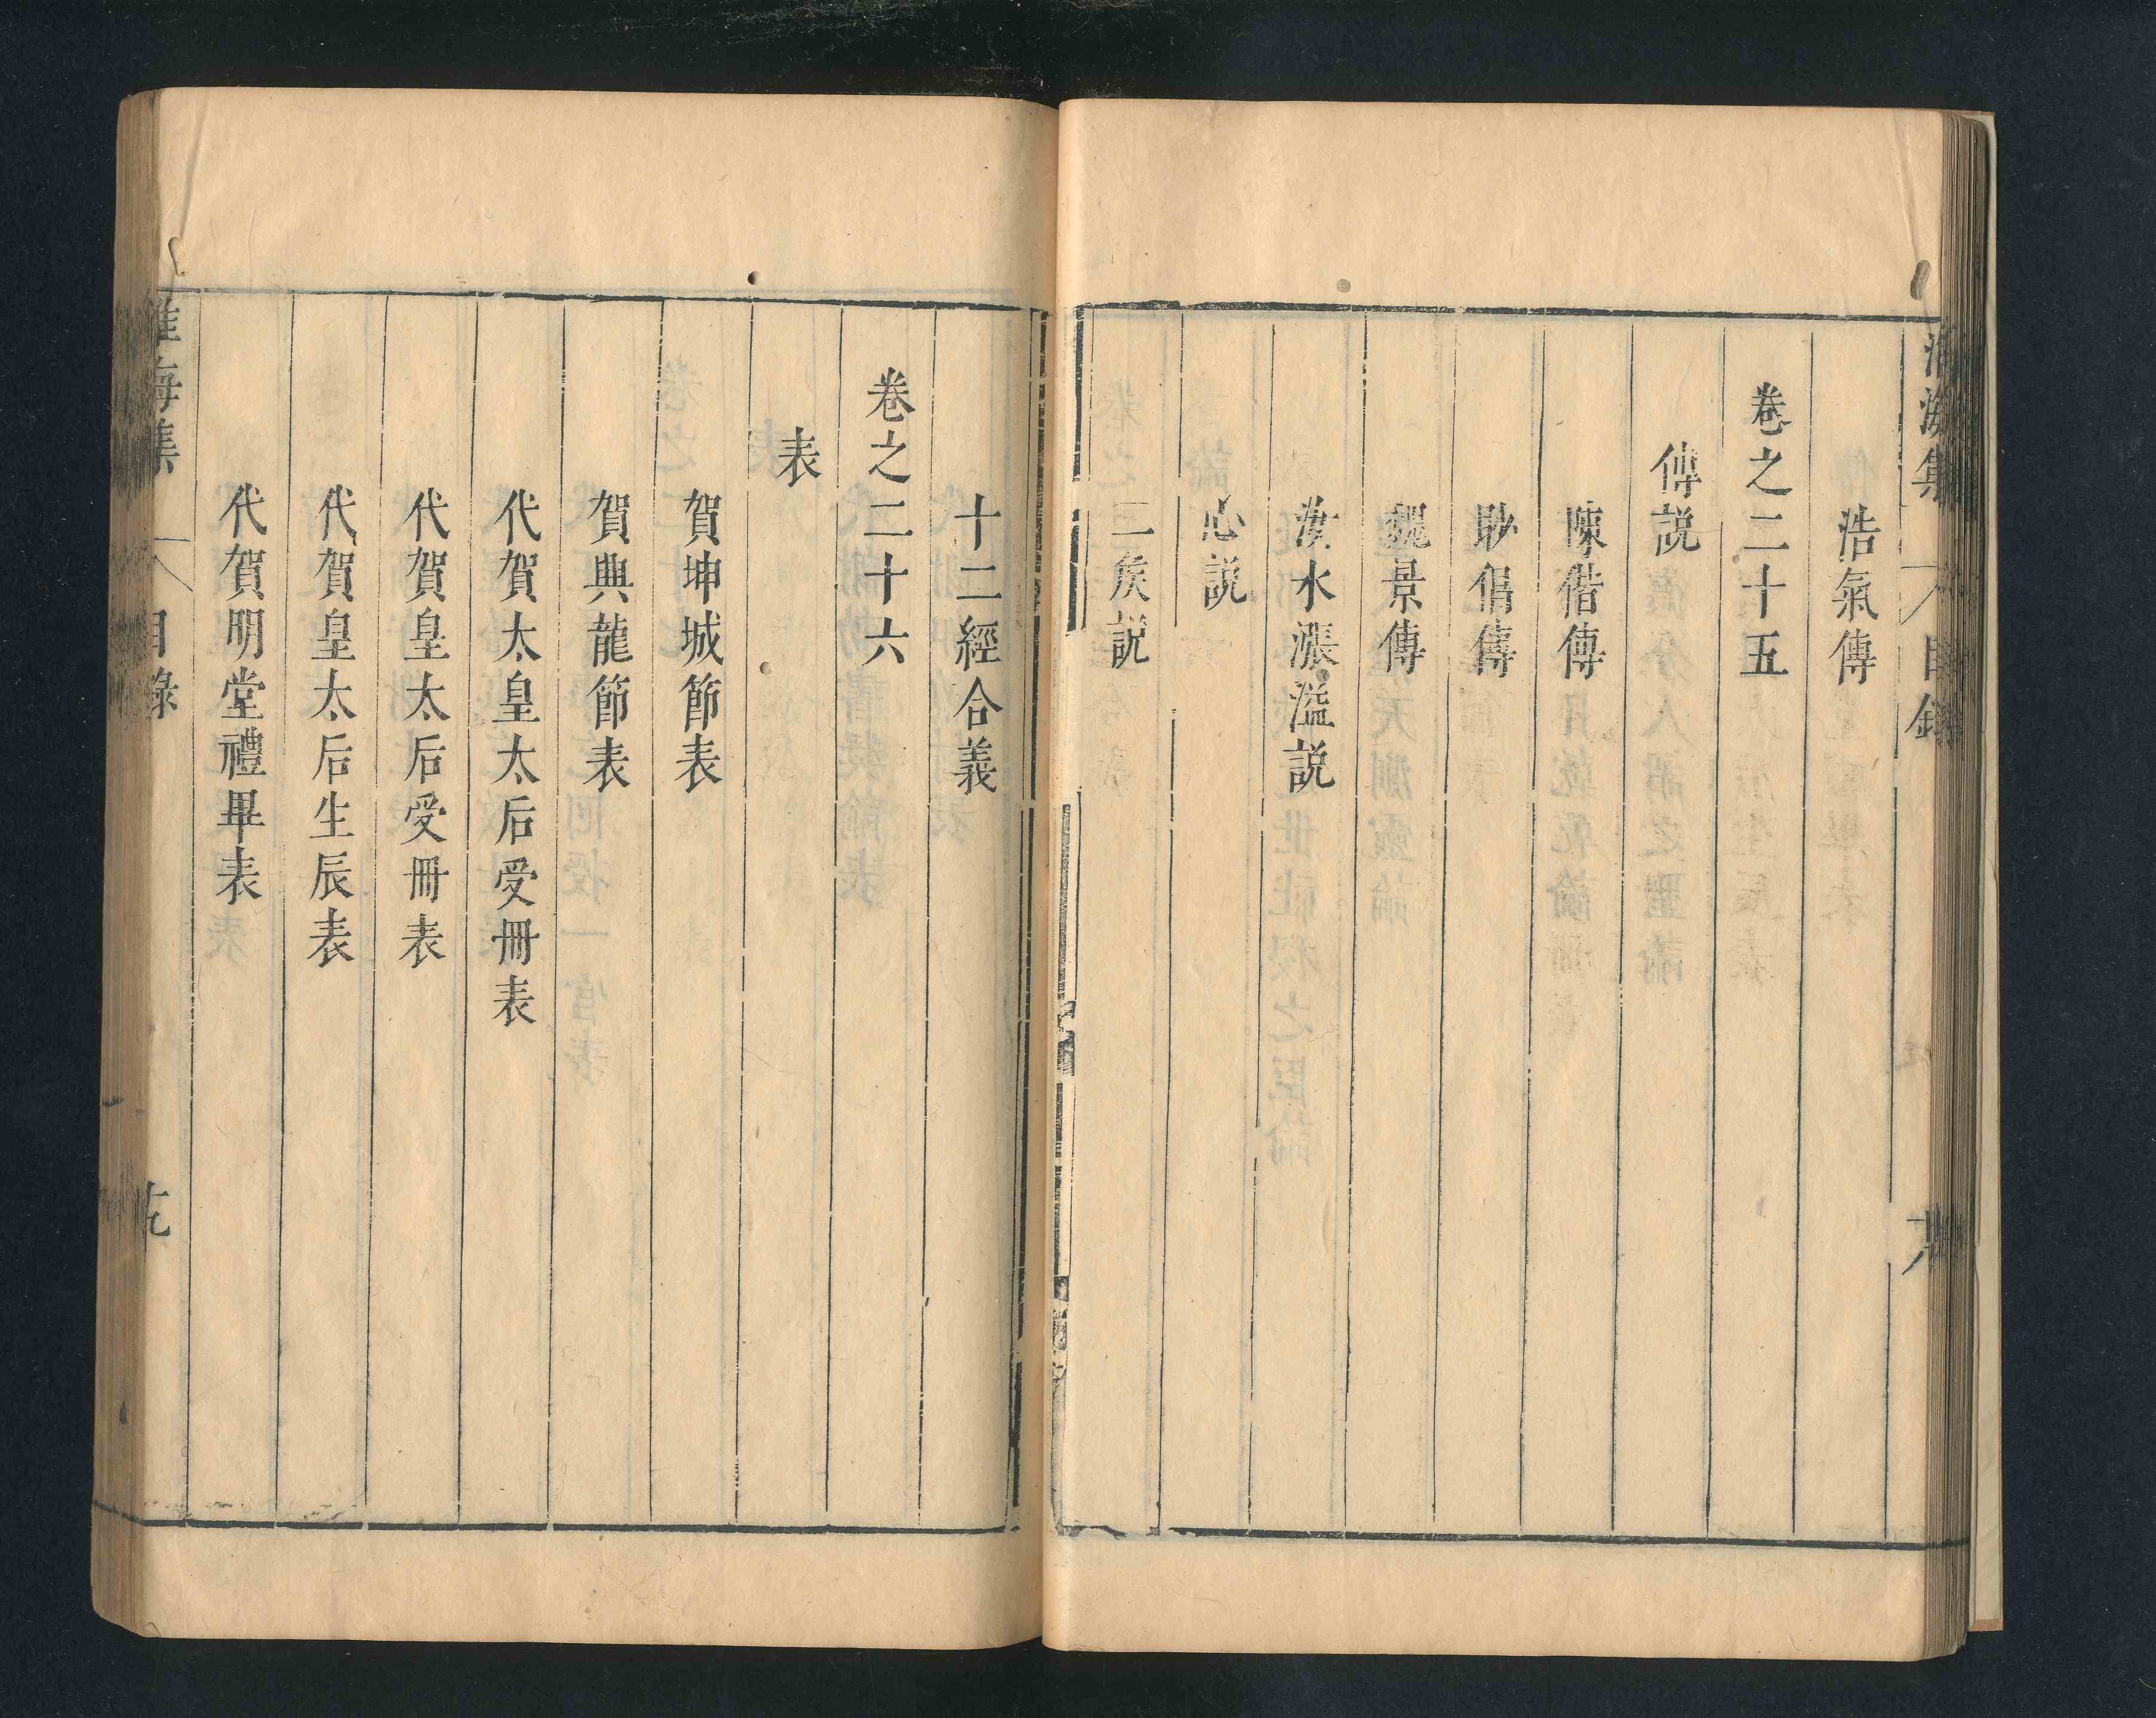 淮海集 目錄
浩氣傳
卷之二十五
傳説
陳偕傳
眇倡傳
魏景傳
汝水漲溢説
心説
二矦説
十二經合義
卷之二十六
表
賀坤城節表
賀興龍節表
代賀太皇太后受冊表
代賀皇太后受冊表
代賀皇太后生辰表
代賀明堂禮畢表
淮海集 目錄